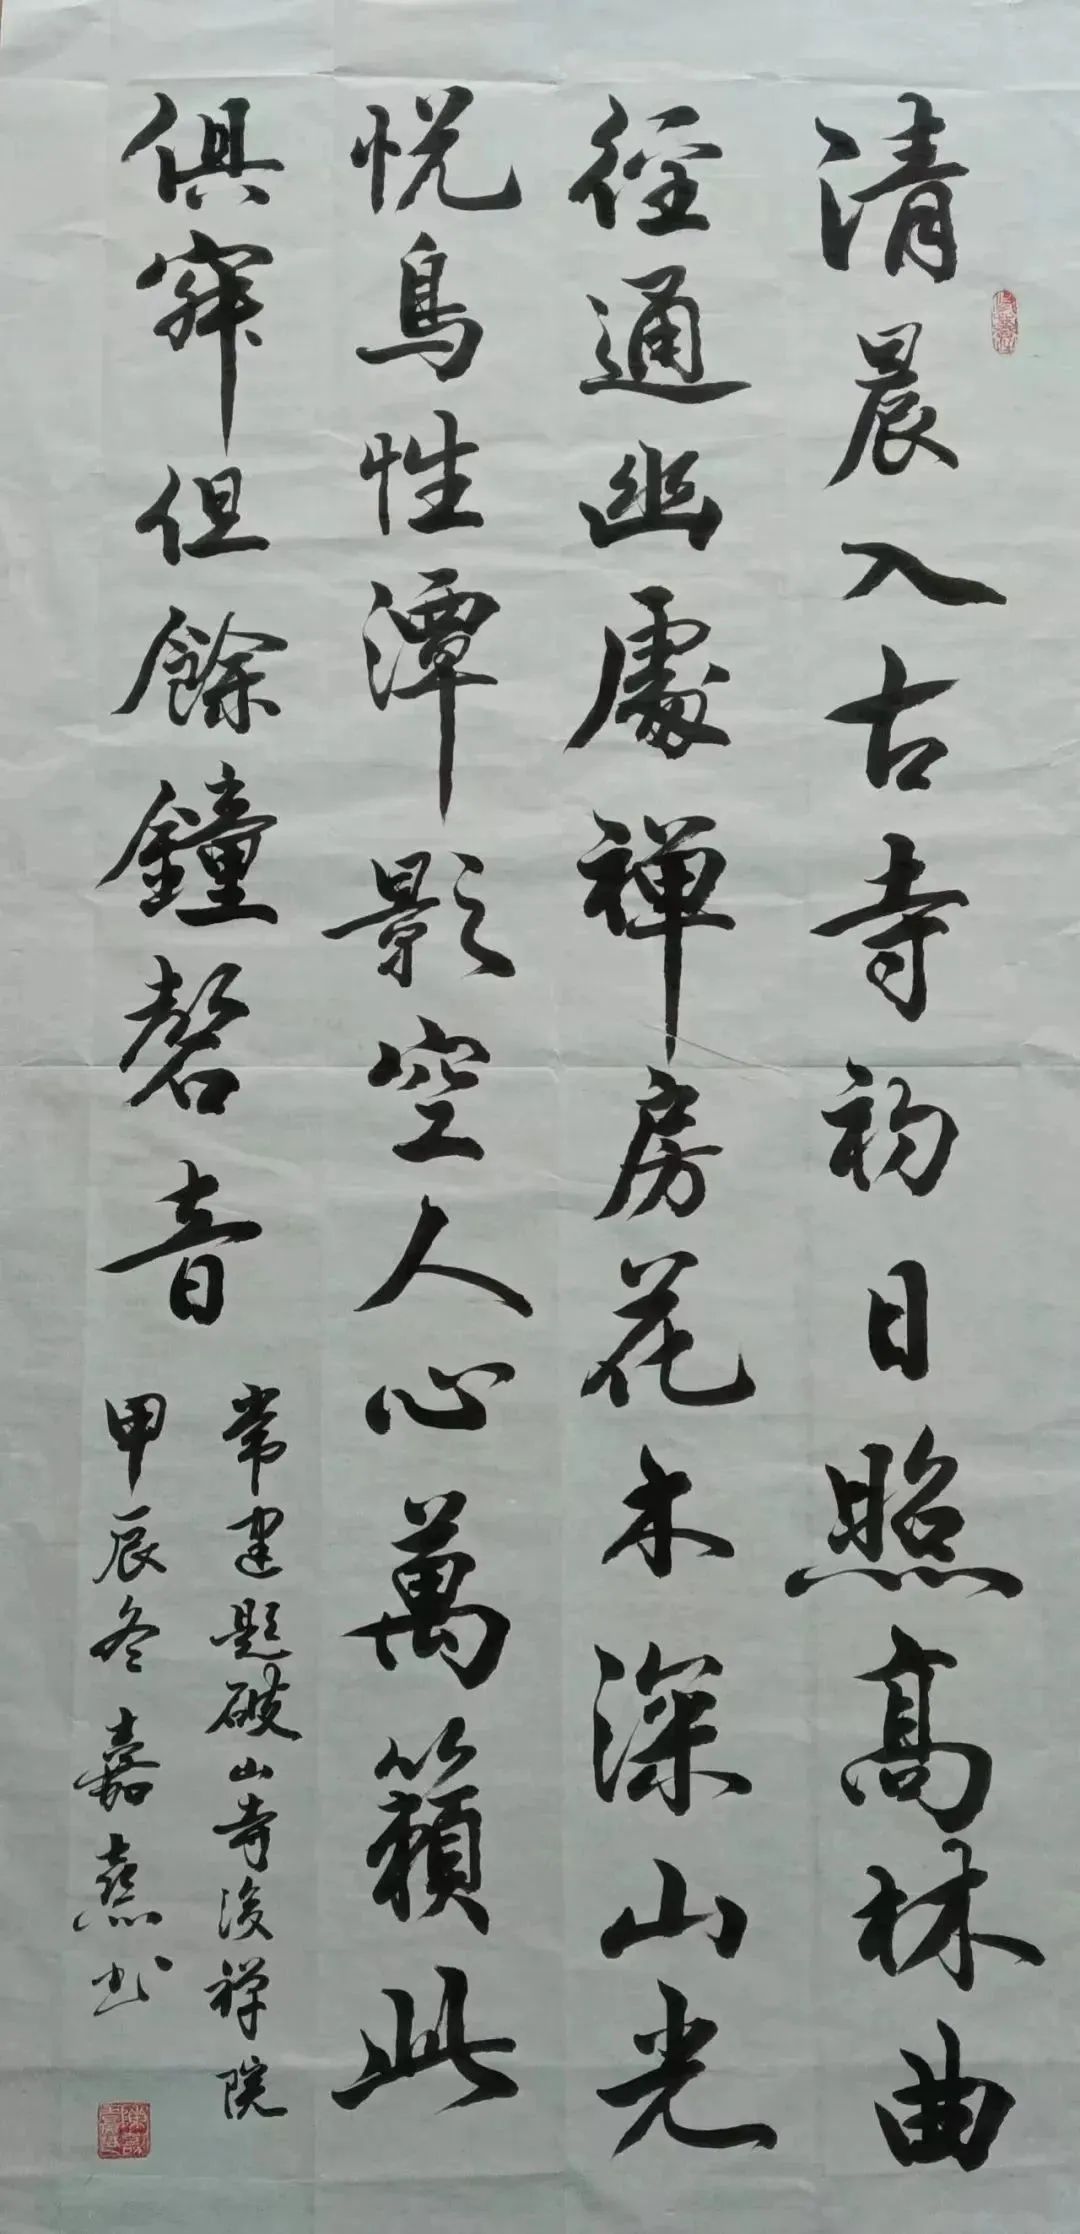 清晨入古寺初日照高林曲
徑通幽處禅房花木深山光
悦鳥性潭影空人心萬籟此
俱寂但餘鐘磬音
常建題破山寺後禅院
甲辰冬嘉燕书